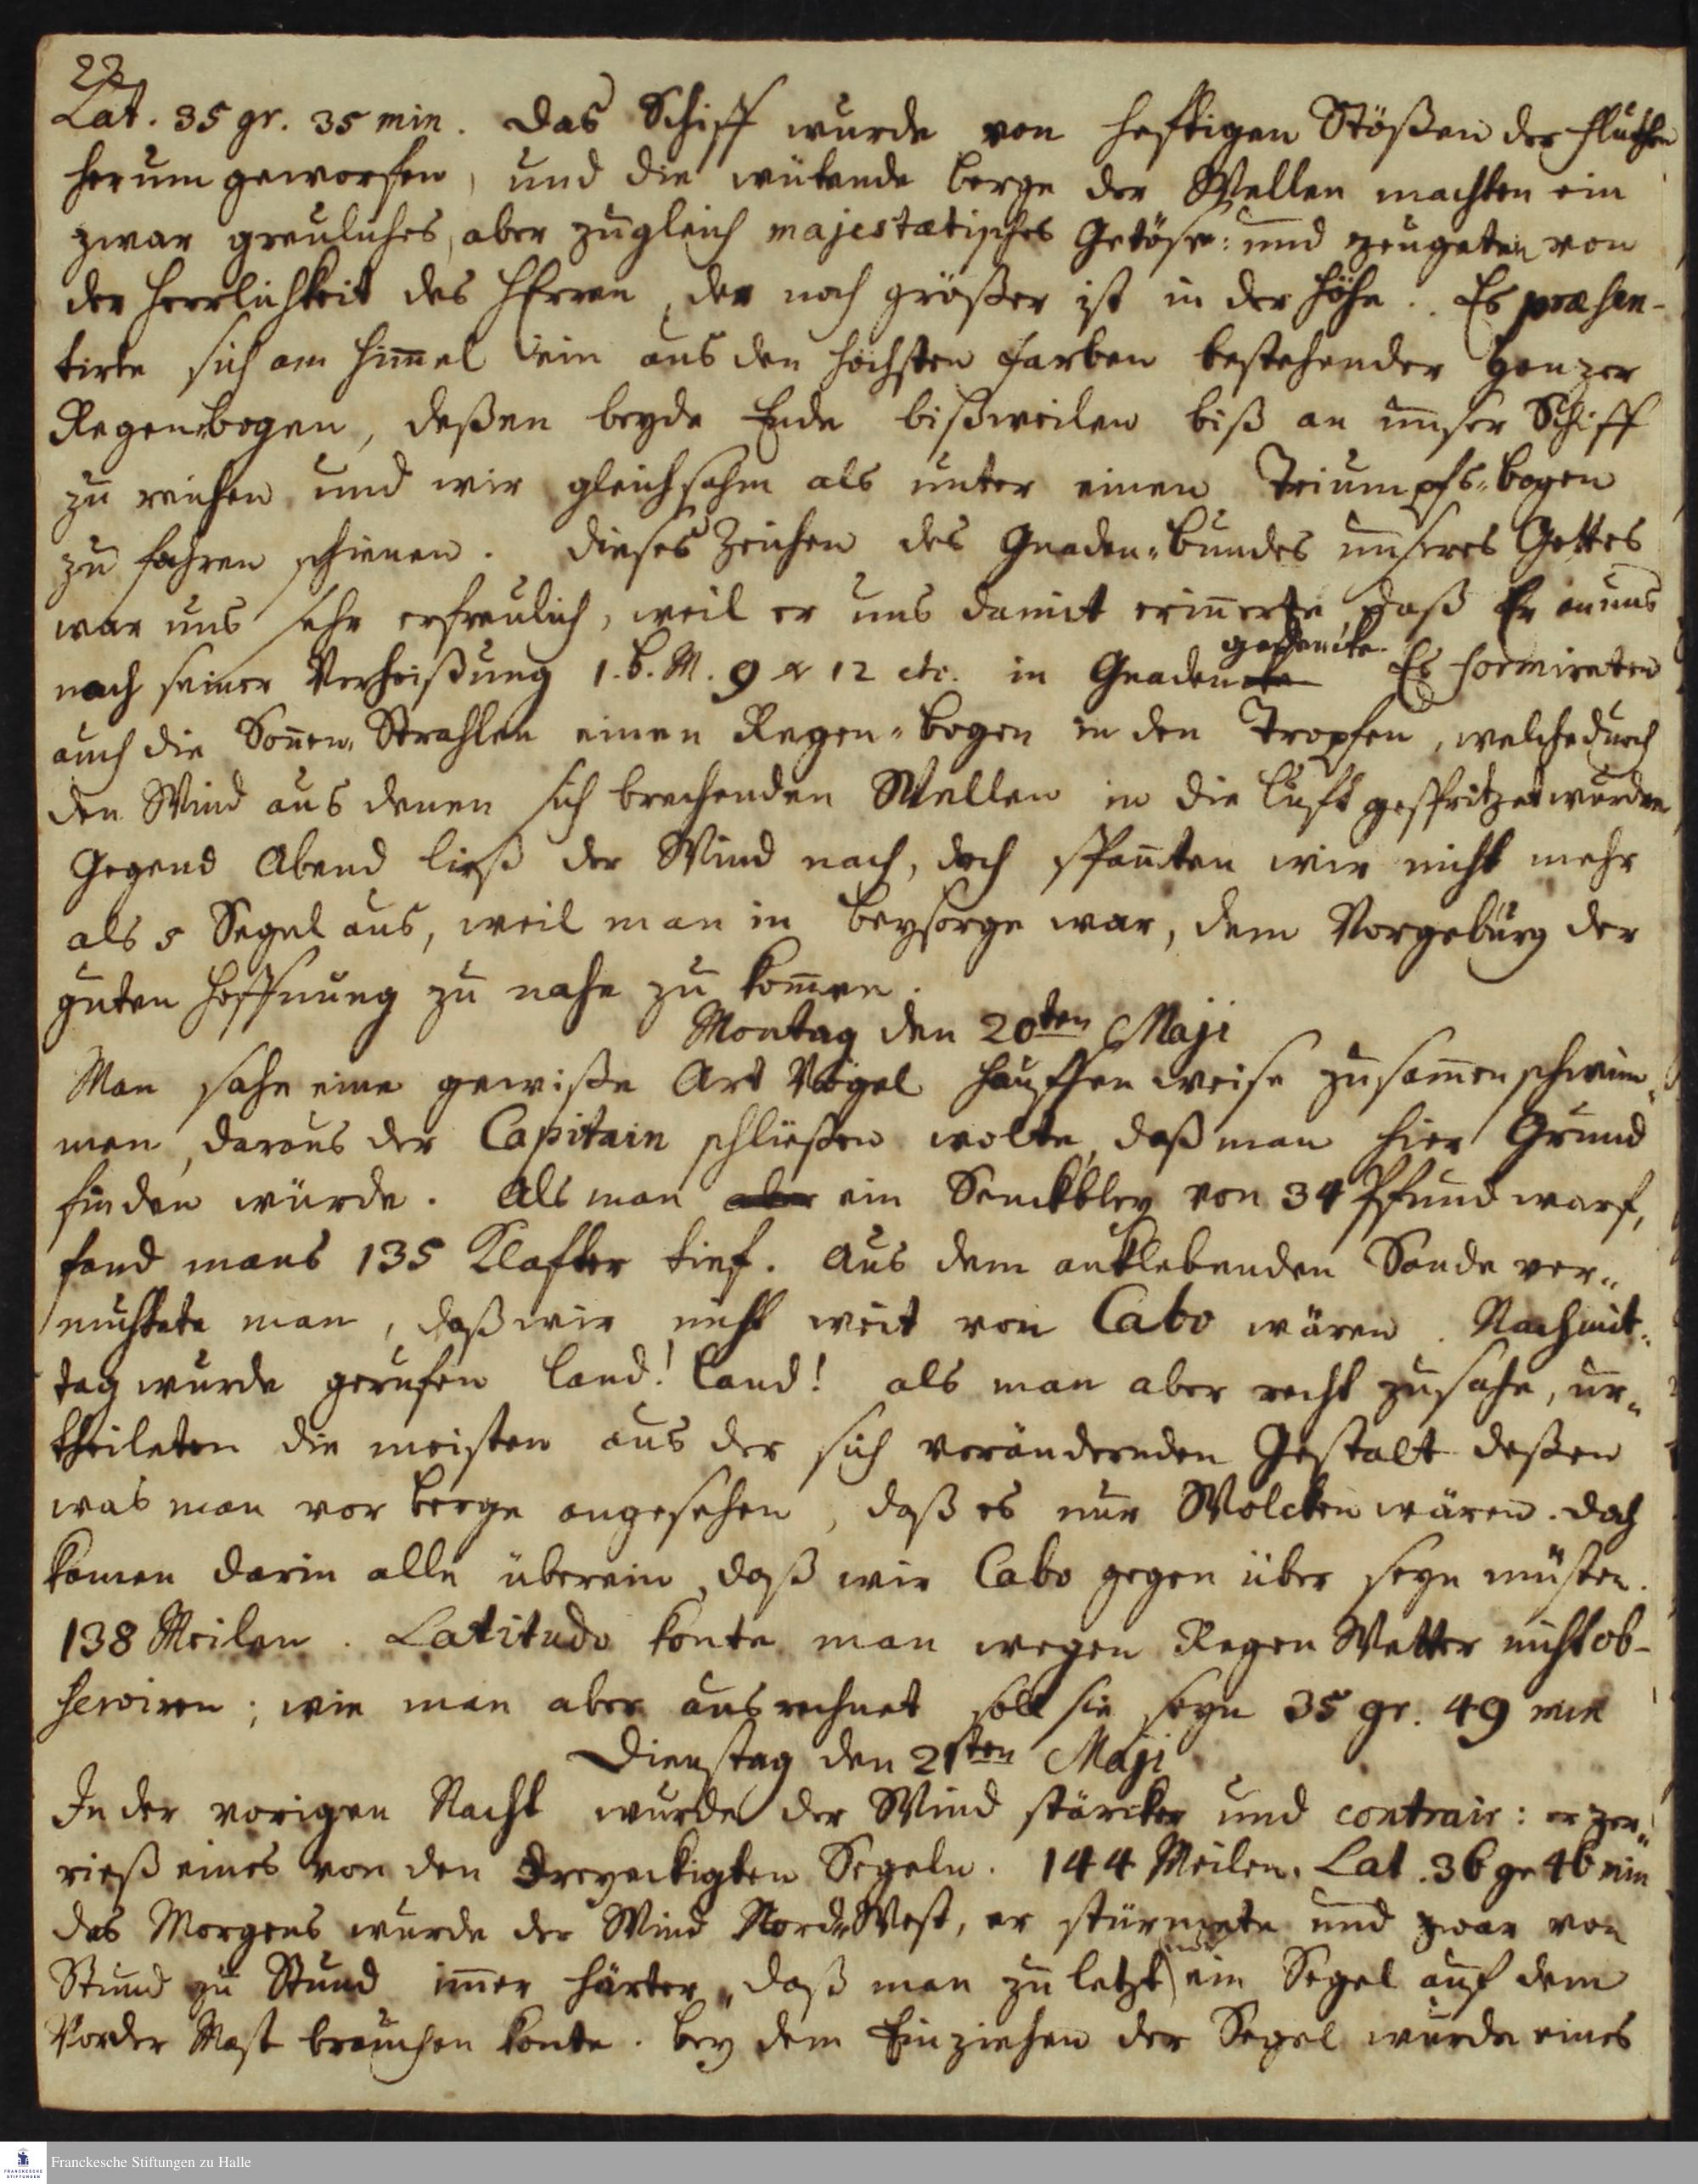 22
Lat. 35 gr. 35 min. Das Schiff wurde von heftigen Stößen der Fluthen
herum geworfen, und die wütende Berge der Wellen machten ein
zwar greuliches, aber zugleich majestætisches Getöse: und zeugeten von
der Herrlichkeit des HErren, der noch größer ist in der Höhe. Es præsen-
tirte sich am Himmel ein aus den höchsten Farben bestehender gantzer
Regenbogen, deßen beyde Ende bißweilen biß an unser Schiff
zu reichen und wir gleichsahm als unter einen Triumphs-bogen
zu fahren schienen. Dieses Zeichen des Gnaden-bundes unseres Gottes
war uns sehr erfreulich, weil er uns damit erinnerte, daß Er an uns
nach seiner Verheißung 1. B. M. 9 v 12 etc. in Gnaden gedencke. Es formireten
auch die Sonnen-Strahlen einen Regen-bogen in den Tropfen, welche durch
den Wind aus denen sich brechenden Wellen in die Luft gespritzet wurden
Gegend Abend ließ der Wind nach, doch spanten wir nicht mehr
als 5 Segel aus, weil man in Beysorge war, dem Vorgebürg der
guten Hoffnung zu nahe zu kommen.
Montag den 20ten Maji
Man sahe eine gewiße Art Vögel hauffen weise zusammen schwim-
men, daraus der Capitain schließen wolte, daß man hier Grund
finden würde. Als man aber ein Senckbley von 34 Pfund warf,
fand mans 135 Klafter tief. Aus dem anklebenden Sande ver-
muthete man, daß wir nicht weit von Cabo wären. Nachmit-
tag wurde gerufen Land! Land! als man aber recht zusahe, ur-
theileten die meisten aus der sich verändernden Gestalt deßen
was man vor Berge angesehen, daß es nur Wolcken wären. doch
kamen darin alle überein, daß wir Cabo gegen über seyn müsten.
138 Meilen. Latitudo konte man wegen Regen Wetter nicht ob-
serviren; wie man aber ausrechnet soll sie seyn 35 gr. 49 min
Dienstag den 21sten Maji
In der vorigen Nacht wurde der Wind stärcker und contrair: er zer-
rieß eines von den dreyeckigten Segeln. 144 Meilen. Lat. 36 gr 46 min
des Morgens wurde der Wind Nord-West, er stürmete und zwar von
Stund zu Stund immer härter, daß man zu letzt nur ein Segel auf dem
Vorder Mast brauchen konte. Bey dem Einziehen der Segel wurde eines
Franckesche Stiftungen zu Halle